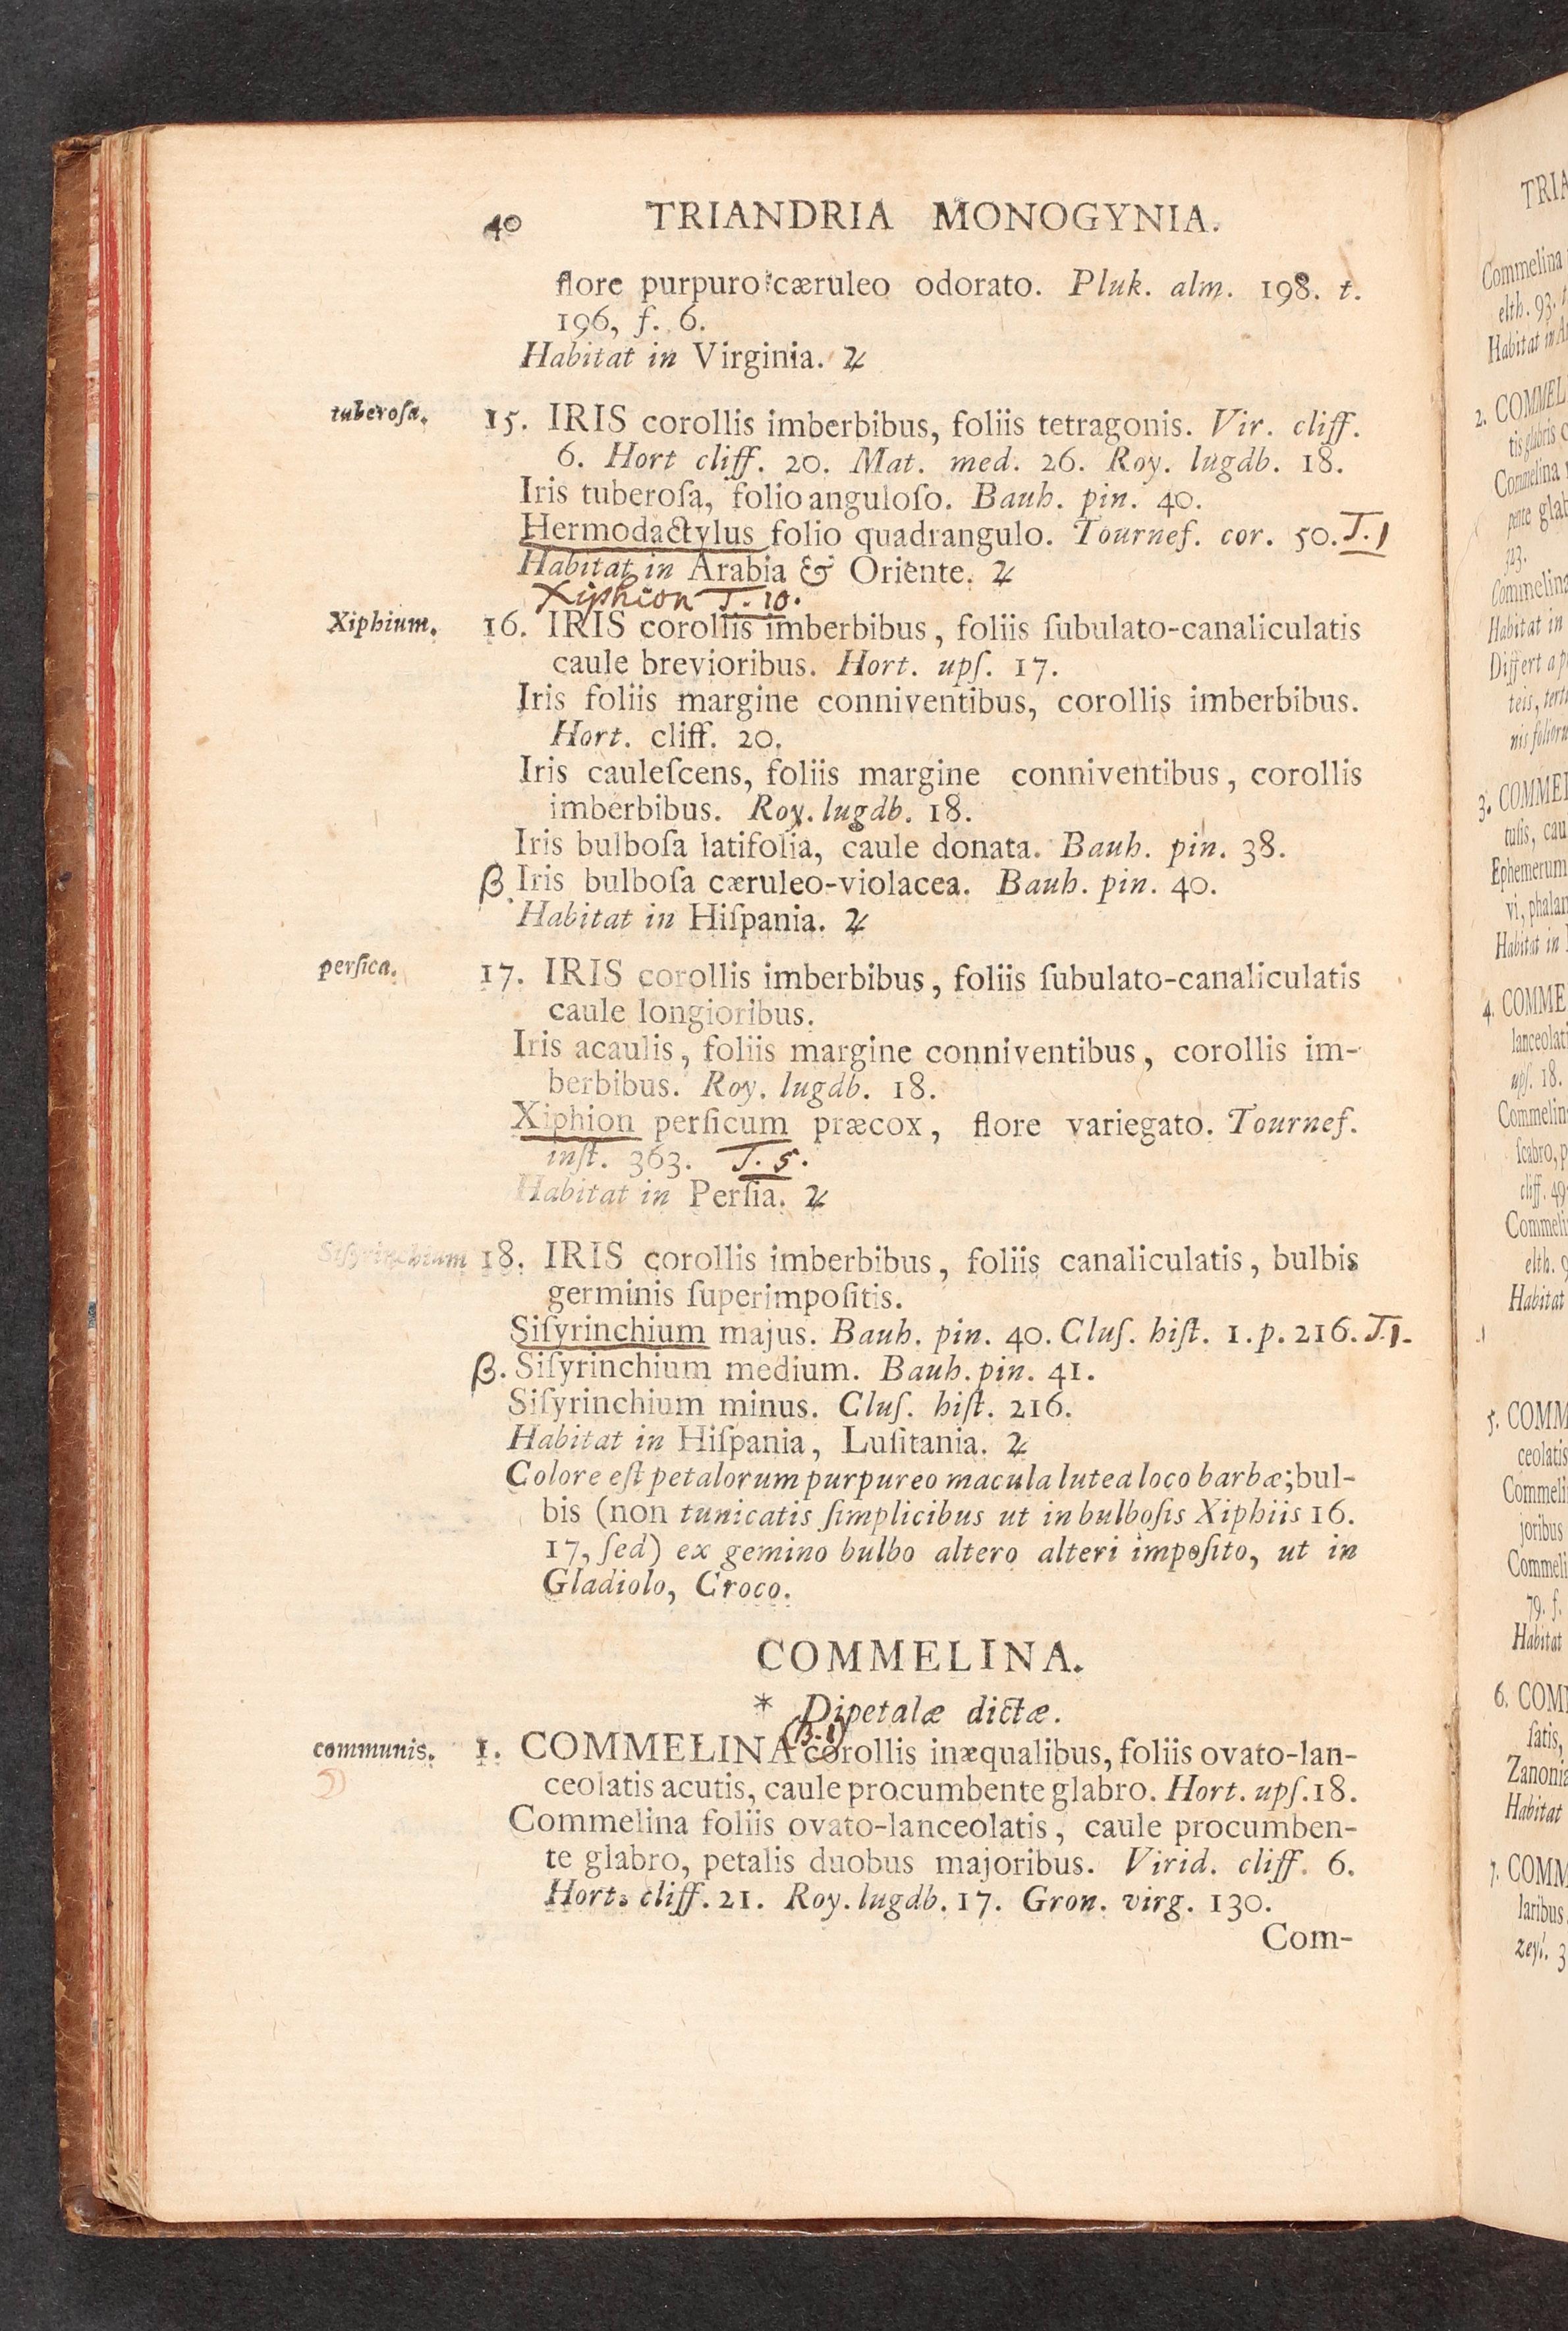 40 TRIANDRIA MONOGYNIA.
flore purpuro-cæruleo odorato. Pluk. alm. 198. t.
196, f. 6.
Habitat in Virginia. ♃
tuberoſa. 15. IRIS corollis imberbibus, foliis tetragonis. Vir. cliff.
6. Hort cliff. 20. Mat. med. 26. Roy. lugdb. 18.
Iris tuberoſa, folio anguloſo. Bauh. pin. 40.
Hermodactylus folio quadrangulo. Tournef. cor. 50. T. 1
Habitat in Arabia & Oriente. ♃
Xiphion T. 10.
Xiphium. 16. IRIS corollis imberbibus, foliis ſubulato-canaliculatis
caule brevioribus. Hort. upſ. 17.
Iris foliis margine conniventibus, corollis imberbibus.
Hort. cliff. 20.
Iris cauleſcens, foliis margine conniventibus, corollis
imberbibus. Roy. lugdb. 18.
Iris bulboſa latifolia, caule donata. Bauh. pin. 38.
β. Iris bulboſa cæruleo-violacea. Bauh. pin. 40.
Habitat in Hiſpania. ♃
perſica. 17. IRIS corollis imberbibus, foliis ſubulato-canaliculatis
caule longioribus.
Iris acaulis, foliis margine conniventibus, corollis im-
berbibus. Roy. lugdb. 18.
Xiphion perſicum præcox, flore variegato. Tournef.
inſt. 363. T. 5.
Habitat in Perſia. ♃
Siſyrinchium 18. IRIS corollis imberbibus, foliis canaliculatis, bulbis
germinis ſuperimpoſitis.
Siſyrinchium majus. Bauh. pin. 40. Cluſ. hiſt. 1. p. 216. T. 1.
β. Siſyrinchium medium. Bauh. pin. 41.
Siſyrinchium minus. Cluſ. hiſt. 216.
Habitat in Hiſpania, Luſitania. ♃
Colore eſt petalorum purpureo macula lutea loco barbæ; bul-
bis (non tunicatis ſimplicibus ut in bulboſis Xiphiis 16.
17, ſed) ex gemino bulbo altero alteri impoſito, ut in
Gladiolo, Croco.
COMMELINA.
* Dipetalæ dictæ.
communis. 1. COMMELINA corollis inæqualibus, foliis ovato-lan-
ceolatis acutis, caule procumbente glabro. Hort. upſ. 18.
Commelina foliis ovato-lanceolatis, caule procumben-
te glabro, petalis duobus majoribus. Virid. cliff. 6.
Hort. cliff. 21. Roy. lugdb. 17. Gron. virg. 130.
Com-
TRIA
Commelina
elth. 93. t
Habitat in A
2. COMMEL
tis glabris c
Commelina
pente glab
Commelina
Habitat in
Differt a p
teis, terti
nis folioru
3. COMMEL
tuſis, cau
Ephemerum
vi, phalan
Habitat in
4. COMME
lanceolati
upſ. 18.
Commelin
ſcabro, p
cliff. 49
Commeli
elth. 9
Habitat
5. COMM
ceolatis
Commeli
joribus
Commeli
79. f.
Habitat
6. COM
ſatis,
Zanonia
Habitat
7. COMM
laribus
zeyl. 3